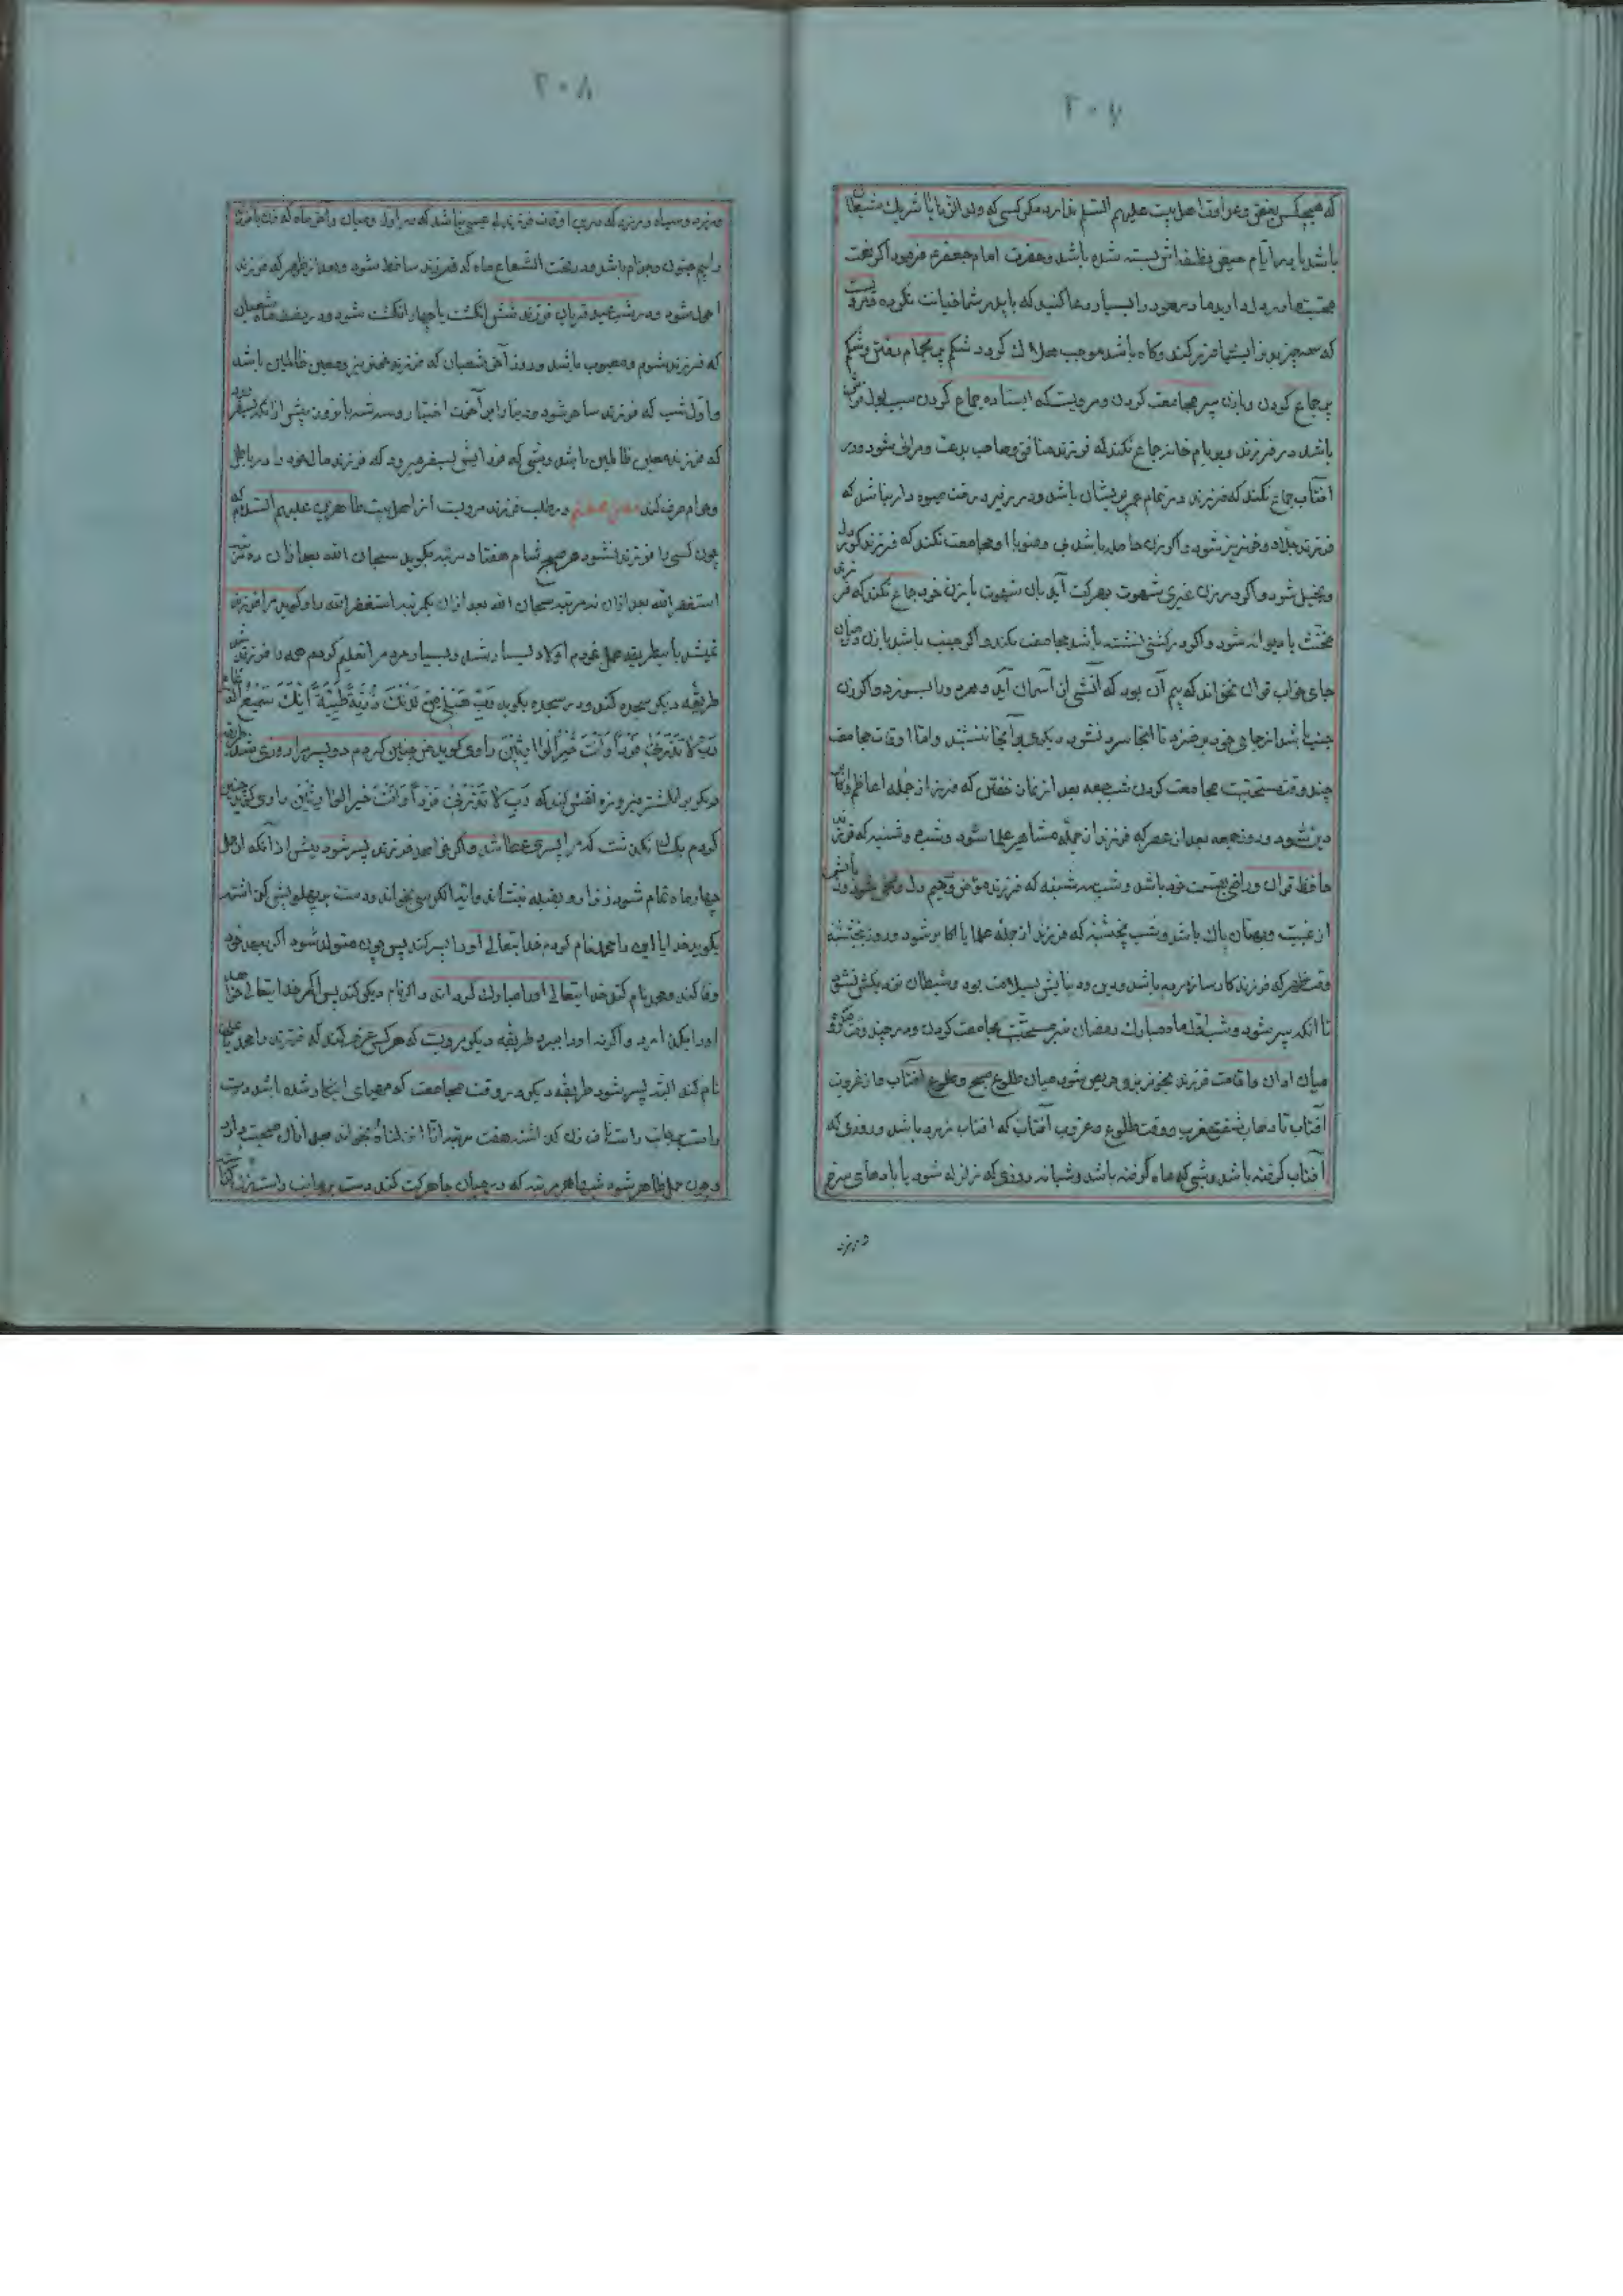 ٢٠٧
که هیچکس بغض وعداوت اهل بیت علیهم السلم ندارد مکر کسی که ولد الزنا یا شریك شیطان
باشد یا در ایام حیض نطفه اش بسته شده باشد وحضرت امام جعفر فرمود اکر
محبت ما در دل دارید مادر خود را بسیار دعا کنید که با پدر شما خیانت نکرده
که سه چیز بدن را کند وکاه باشد موجب هلاك کردد شکم پر بحمام رفتن وشکم
پر جماع کردن وبا زن پیر مجامعت کردن ومرویست که ایستاده جماع کردن سبب بول
باشد در وبر بام خانه جماع نکند که فرزند منافق وصاحب بدعت شود ودر
افتاب جماع نکند که فرزند در تمام عمر پریشان باشد ودر زیر درخت میوه دار نباشد که
فرزند جلاد وخونریز شود واکر زن حامله باشد بی وضو با او مجامعت نکند که فرزند کوردل
وبخیل شود واکر در زن غیری شهوت بحرکت آید بان شهوت با زن خود جماع نکند که فرزند
مخنث یا دیوانه شود واکر در کشتی نشسته باشد مجامعت نکند واکر جنب باشد با زن در میان
جای خواب قران نخواند که بیم آن بود که آتشی از آسمان آید وهر دو را بسوزد واکر زن
جنب باشد از جای خود برخیزد تا انجا سرد نشود دیکری بر آنجا ننشیند واما اوقات مجامعت
چند وقت مستحبست مجامعت کردن شب جمعه بعد از نماز خفتن که فرزند از جمله اعاظم
دین شود وروز جمعه بعد از عصر که فرزند از جمله مشاهیر علما شود وشب دوشنبه که فرزند
حافظ قران وراضی بقسمت خود باشد وشب سه شنبه که فرزند رحیم دل باشد
از غیبت وبهتان پاك باشد وشب پنجشنبه که فرزند از جمله علما یا شود وروز پنجشنبه
وقت ظهر که فرزند باشد ودین ودنیایش بسلامت بود وشیطان نزدیکش نشود
تا انکه پیر شود وشب اول ماه مبارك رمضان نیز مستحبست مجامعت کردن ودر چند وقت مکروه
میان اذان واقامت فرزند خونریز وحریص شود میان طلوع صبح وطلوع افتاب واز غروب
آفتاب تا ذهاب شفق مغرب ووقت طلوع وغروب آفتاب که افتاب زرد باشد وروزی که
آفتاب کرفته باشد وشبی که ماه کرفته باشد وشبانه روزی که زلزله شود یا بادهای سرخ
وزرد
٢٠٨
وزرد وسیاه وزد که درین اوقات فرزند بی عیب نباشد که در اول ومیان وآخر ماه که زن یا فرزند
را بیم جنون وجذام باشد ودر تحت الشعاع ماه که فرزند ساقط شود وبعد از ظهر که فرزند
احول شود ودر شب عید قربان فرزند شش انکشت یا چهار انکشت شود ودر نصف ماه شعبان
که فرزند شوم ومعیوب باشد وروز آخر شعبان که فرزند ومعین ظالمین باشد
واول شب که فرزند ساحر شود ودنیا را بر آخرت اختیار
که فرزند معین ظالمین باشد وشبی که فردایش بسفر میرود که فرزند مال خود را در باطل
وحرام صرف کند در طلب فرزند مرویست از اهل بیت طاهرین علیهم السلام که
چون کسی را فرزند نشود هر صبح وشام هفتاد مرتبه بکوید سبحان الله بعد از ان ده مرتبه
استغفر الله بعد از ان نه مرتبه سبحان الله بعد از ان یکمرتبه استغفر الله راوی کوید مرا فرزند
نمیشد باین طریقه عمل نمودم اولاد بسیار شد وبسیار مردم را تعلیم کردم همه را فرزند شد
طریقه دیکر سجده کند ودر سجده بکوید رَبِّ هَبْ لِي مِنْ لَدُنْكَ ذُرِّيَّةً طَيِّبَةً اِنَّكَ سَمِيعُ الدُّعَاءِ
رَبِّ لَا تَذَرْنِي فَرْداً وَاَنْتَ خَيْرُ الْوَارِثِينَ راوی کوید من چنین کردم دو پسر مرا روزی شد طریقه
دیکر بر انکشتر فیروزه نقش کند که رَبِّ لَا تَذَرْنِي فَرْداً وَاَنْتَ خَيْرُ الْوَارِثِينَ راوی کوید چنین
کردم یك سال نکذشت که مرا پسری عطا شد واکر خواهد فرزند پسر شود پیش از آنکه از حمل
چهار ماه تمام شود زن را رو بقبله بنشاند وآیة الکرسی بخواند ودست بر پهلویش کذاشته
بکوید خدایا این را محمد نام کردم خدایتعالی او را پسر کند پس چون متولد شود اکر بعهد خود
وفا کند ومحمد نام کند خدایتعالی او را مبارك کرداند واکر نام دیکر کند پس اکر خدایتعالی خواهد
او را بکذارد واکر نه او را بمیرد طریقه دیکر مرویست که هر کس عزم کند که فرزند را محمد یا علی
نام کند البته پسر شود طریقه دیکر در وقت مجامعت که مهیای اینکار شده باشد دست
راست بجانب راست ناف زن کذاشته هفت مرتبه انا انزلناه بخواند بعد از ان صحبت بدارد
وچون حمل ظاهر شود شبها هر مرتبه که در میان جا حرکت کند دست بر جانب راست زن